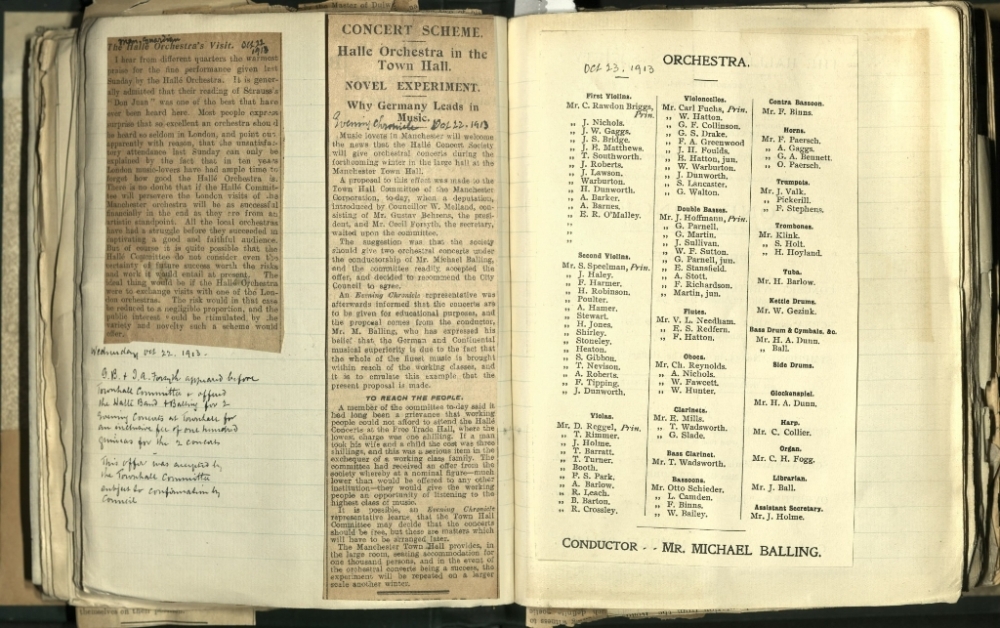 Man. Guardian
The Hallé Orchestra's Visit. Oct 22
1913
I hear from different quarters the warmest
praise for the fine performance given last
Sunday by the Hallé Orchestra. It is gener-
ally admitted that their reading of Strauss's
"Don Juan" was one of the best that have
ever been heard here. Most people express
surprise that so excellent an orchestra should
be heard so seldom in London, and point out,
apparently with reason, that the unsatisfac-
tory attendance last Sunday can only be
explained by the fact that in ten years
London music-lovers have had ample time to
forget how good the Hallé Orchestra is.
There is no doubt that if the Hallé Commit-
tee will persevere the London visits of the
Manchester orchestra will be as successful
financially in the end as they are from an
artistic standpoint. All the local orchestras
have had a struggle before they succeeded in
captivating a good and faithful audience.
But of course it is quite possible that the
Hallé Committee do not consider even the
certainty of future success worth the risks
such work would entail at present. The
ideal thing would be if the Hallé Orchestra
were to exchange visits with one of the Lon-
don orchestras. The risk would in that case
be reduced to a negligible proportion, and the
public interest would be stimulated by the
variety and novelty such a scheme would
offer.
Wednesday Oct 22. 1913.
G.B. & J.A. Forsyth appeared before
Townhall Committee & offered
the Hallé Band & Balling for 2
Evening Concerts at Townhall for
an inclusive fee of one hundred
guineas for the 2 concerts
This offer was accepted by
the Townhall Committee
subject to confirmation by
Council
CONCERT SCHEME.
Halle Orchestra in the
Town Hall.
NOVEL EXPERIMENT.
Why Germany Leads in
Music.
Evening Chronicle Oct 22. 1913
Music lovers in Manchester will welcome
the news that the Hallé Concert Society
will give orchestral concerts during the
forthcoming winter in the large hall at the
Manchester Town Hall.
A proposal to this effect was made to the
Town Hall Committee of the Manchester
Corporation, to-day, when a deputation,
introduced by Councillor W. Melland, con-
sisting of Mr. Gustav Behrens, the presi-
dent, and Mr. Cecil Forsyth, the secretary,
waited upon the committee.
The suggestion was that the society
should give two orchestral concerts under
the conductorship of Mr. Michael Balling,
and the committee readily accepted the
offer, and decided to recommend the City
Council to agree.
An Evening Chronicle representative was
afterwards informed that the concerts are
to be given for educational purposes, and
the proposal comes from the conductor,
Mr. M. Balling, who has expressed his
belief that the German and Continental
musical superiority is due to the fact that
the whole of the finest music is brought
within reach of the working classes, and
it is to emulate this example that the
present proposal is made.
TO REACH THE PEOPLE.
A member of the committee to-day said it
had long been a grievance that working
people could not afford to attend the Hallé
Concerts at the Free Trade Hall, where the
lowest charge was one shilling. If a man
took his wife and a child the cost was three
shillings, and this was a serious item in the
exchequer of a working class family. The
committee had received an offer from the
society whereby at a nominal figure—much
lower than would be offered to any other
institution—they would give the working
people an opportunity of listening to the
highest class of music.
It is possible, an Evening Chronicle
representative learns, that the Town Hall
Committee may decide that the concerts
should be free, but these are matters which
will have to be arranged later.
The Manchester Town Hall provides, in
the large room, seating accommodation for
one thousand persons, and in the event of
the orchestral concerts being a success, the
experiment will be repeated on a larger
scale another winter.
Oct 23. 1913
ORCHESTRA.
First Violins.
Mr. C. Rawdon Briggs,
Prin.
„ J. Nichols.
„ J. W. Gaggs.
„ J. S. Bridge.
„ J. E. Matthews.
„ T. Southworth.
„ J. Roberts.
„ J. Lawson.
„ Warburton.
„ H. Dunworth.
„ A. Barker.
„ A. Barnes.
„ E. R. O'Malley.
„
„
„
Second Violins.
Mr. S. Speelman, Prin.
„ J. Haley.
„ F. Harmer.
„ H. Robinson.
„ Poulter.
„ A. Hamer.
„ Stewart.
„ H. Jones.
„ Shirley.
„ Stoneley.
„ Heaton.
„ S. Gibbon.
„ T. Nevison.
„ A. Roberts.
„ F. Tipping.
„ J. Dunworth.
Violas.
Mr. D. Reggel, Prin.
„ T. Rimmer.
„ J. Holme.
„ T. Barratt.
„ T. Turner.
„ Booth.
„ P. S. Park.
„ A. Barlow.
„ R. Leach.
„ B. Barton.
„ R. Crossley.
Violoncellos.
Mr. Carl Fuchs, Prin.
„ W. Hatton.
„ G. F. Collinson.
„ G. S. Drake.
„ F. A. Greenwood
„ J. H. Foulds.
„ E. Hatton, jun.
„ W. Warburton.
„ J. Dunworth.
„ S. Lancaster.
„ G. Walton.
Double Basses.
Mr. J. Hoffmann, Prin.
„ G. Parnell.
„ G. Martin.
„ J. Sullivan.
„ W. F. Sutton.
„ G. Parnell, jun.
„ E. Stansfield.
„ A. Stott.
„ F. Richardson.
„ Martin, jun.
Flutes.
Mr. V. L. Needham.
„ E. S. Redfern.
„ F. Hatton.
Oboes.
Mr. Ch. Reynolds.
„ A. Nichols.
„ W. Fawcett.
„ W. Hunter.
Clarinets.
Mr. E. Mills.
„ T. Wadsworth.
„ G. Slade.
Bass Clarinet.
Mr. T. Wadsworth.
Bassoons.
Mr. Otto Schieder.
„ L. Camden.
„ F. Binns.
„ W. Bailey.
Contra Bassoon.
Mr. F. Binns.
Horns.
Mr. F. Paersch.
„ A. Gaggs.
„ G. A. Bennett.
„ O. Paersch.
Trumpets.
Mr. J. Valk.
„ Pickerill.
„ F. Stephens.
Trombones.
Mr. Klink.
„ S. Holt.
„ H. Hoyland.
Tuba.
Mr. H. Barlow.
Kettle Drums.
Mr. W. Gezink.
Bass Drum & Cymbals, &c.
Mr. H. A. Dunn.
„ Ball.
Side Drums.
Glockenspiel.
Mr. H. A. Dunn.
Harp.
Mr. C. Collier.
Organ.
Mr. C. H. Fogg.
Librarian.
Mr. J. Ball.
Assistant Secretary.
Mr. J. Holme.
CONDUCTOR - - MR. MICHAEL BALLING.